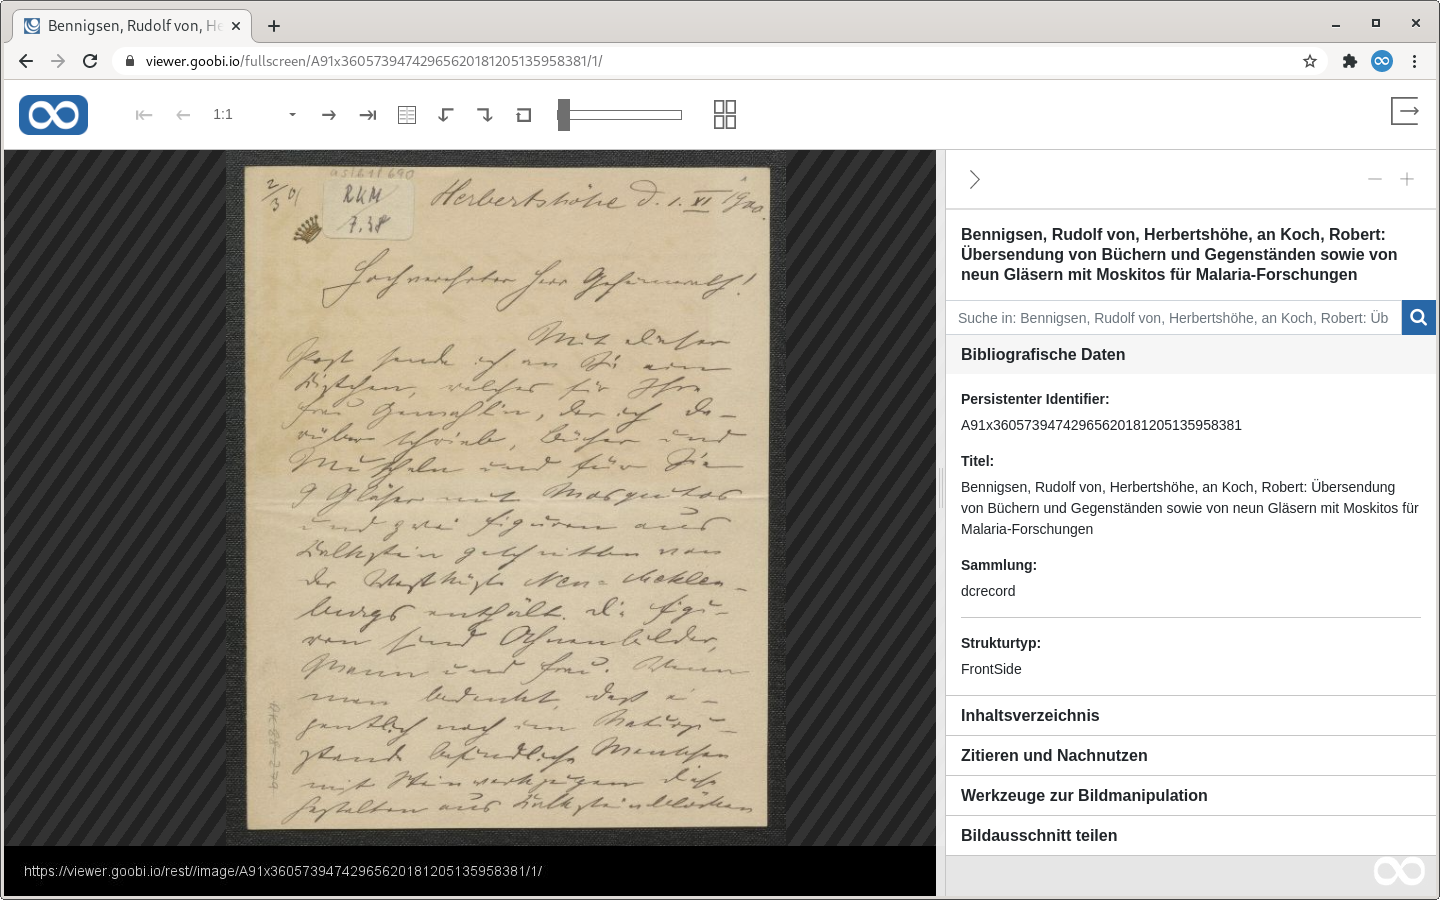 Bennigsen, Rudolf von, He
viewer.goobi.io/fullscreen/A91x36057394742965620181205135958381/1/
1:1
as1611690
2/3 01
RKM
7.38
Herbertshöhe d. 1. XI 1900.
Hochverehrter Herr Geheimrath!
Mit dieser
Post sende ich an Sie ein
Kistchen, welches für Ihre
Frau Gemahlin, der ich da-
rüber schrieb, Bücher und
Muscheln und für Sie
9 Gläser mit Mosquitos
und zwei Figuren aus
Kalkstein geschnitten von
der Westküste Neu-Mecklen-
burgs enthält. Die Figu-
ren sind Ahnenbilder,
Mann und Frau. Wenn
man bedenkt, daß ei-
gentlich noch im Naturzu-
stand befindliche Menschen
mit Steinwerkzeugen diese
Gestalten aus Kalksteinblöcken
https://viewer.goobi.io/rest//image/A91x36057394742965620181205135958381/1/
Bennigsen, Rudolf von, Herbertshöhe, an Koch, Robert:
Übersendung von Büchern und Gegenständen sowie von
neun Gläsern mit Moskitos für Malaria-Forschungen
Suche in: Bennigsen, Rudolf von, Herbertshöhe, an Koch, Robert: Üb
Bibliografische Daten
Persistenter Identifier:
A91x36057394742965620181205135958381
Titel:
Bennigsen, Rudolf von, Herbertshöhe, an Koch, Robert: Übersendung
von Büchern und Gegenständen sowie von neun Gläsern mit Moskitos für
Malaria-Forschungen
Sammlung:
dcrecord
Strukturtyp:
FrontSide
Inhaltsverzeichnis
Zitieren und Nachnutzen
Werkzeuge zur Bildmanipulation
Bildausschnitt teilen